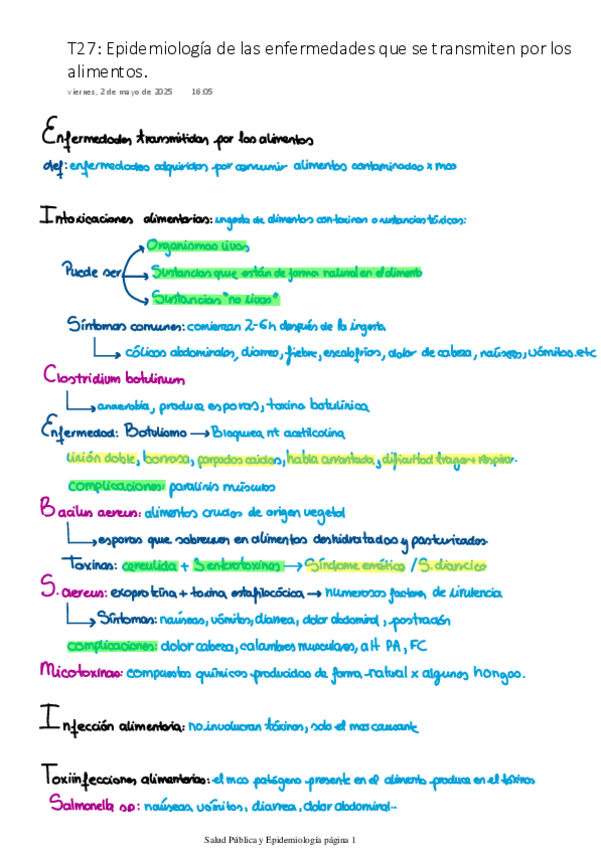 T27: Epidemiología de las enfermedades que se transmiten por los
alimentos.
viernes, 2 de mayo de 2025 16:05
Enfermedades transmitidas por los alimentos
def: enfermedades adquiridas por consumir alimentos contaminados x mos
Intoxicaciones alimentarias: ingesta de alimentos con toxinas o sustancias tóxicas:
Organismos vivos
Puede ser
Sustancias que están de forma natural en el alimento
Sustancias "no vivas"
Síntomas comunes: comienzan 2-6h después de la ingesta
cólicos abdominales, diarrea, fiebre, escalofríos, dolor de cabeza, naúseas, vómitos, etc
Clostridium botulinum
anaerobia, produce esporas, toxina botulínica
Enfermedad: Botulismo → Bloquea nt acetilcolina
visión doble, borrosa, parpados caidos, habla arrastrada, dificultad tragar + respirar.
complicaciones: paralisis músculos
Bacilus aereus: alimentos crudos de origen vegetal
esporas que sobreviven en alimentos deshidratados y pasteurizados.
Toxinas: cereulida + 3 enterotoxinas → Síndrome emético / S. diarreico
S. aereus: exoproteína + toxina estafilocócica → numerosos factores de virulencia
Síntomas: naúseas, vómitos, diarrea, dolor abdominal, postración
complicaciones: dolor cabeza, calambres musculares, alt PA, FC
Micotoxinas: compuestos químicos producidos de forma natural x algunos hongos.
Infección alimentaria: no involucran tóxinas, solo el mos causante
Toxiinfecciones alimentarias: el mos patógeno presente en el alimento produce en el tóxinas
Salmonella sp: naúseas, vómitos, diarrea, dolor abdominal
Salud Pública y Epidemiología página 1